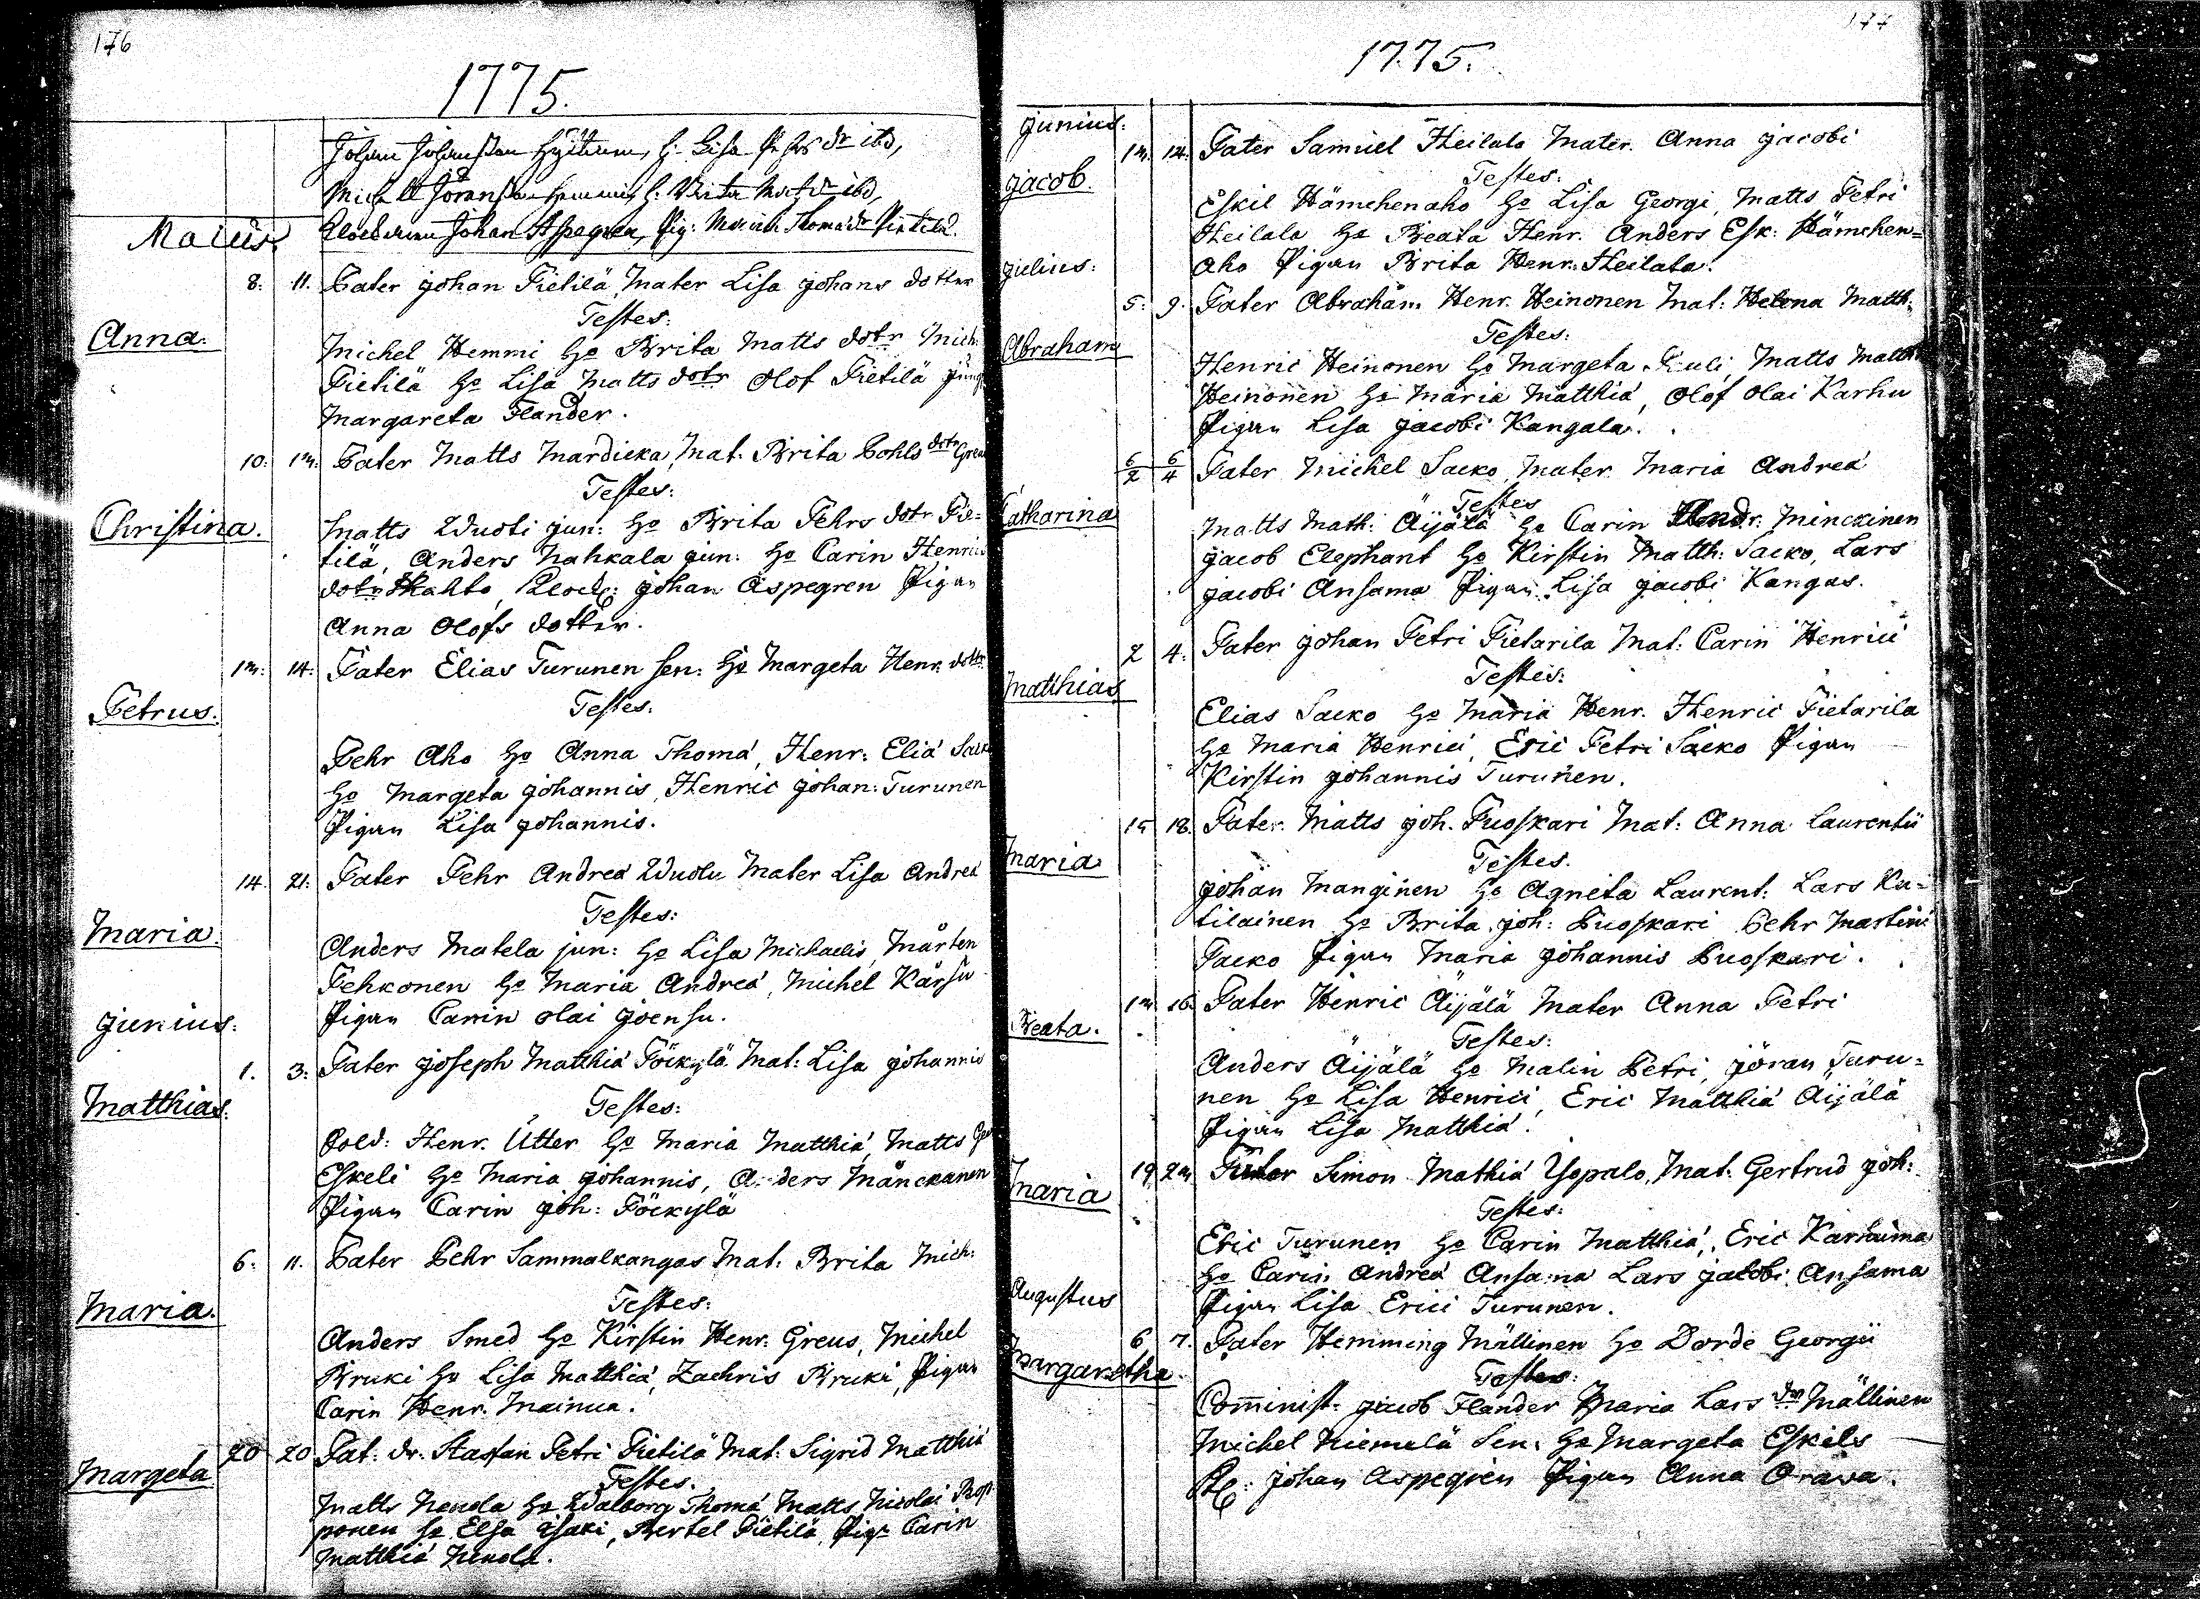 176
1775.
Johan Johansson Hyttinen, H. Lisa Pehrs dr ibd,
Mich. Göransson Hemmi, H. Brita Matts dr ibd,
Klockaren Johan Aspegren, Pig: Maria Thomæ dr Pietilä.
Maius.
8: 11. Pater Johan Pietilä, Mater Lisa Johans dotter
Testes:
Anna.
Michel Hemmi Ho Brita Matts dotr Mich:
Pietilä Ho Lisa Matts dotr Olof Pietilä
Margareta Flander.
10: 12: Pater Matts Mardicka, Mat. Brita Pohls dotr Greus
Testes:
Christina.
Matts Wuoti jun: Ho Brita Pehrs dotr Pie-
tilä, Anders Nahkala jun: Ho Carin Henrics
dotr Skahto, Klock: Johan Aspegren Pigan
Anna Olofs dotter.
12: 14: Pater Elias Turunen sen: Ho Margeta Henr. dottr
Testes.
Petrus.
Pehr Aho Ho Anna Thomæ, Henr: Eliæ Sacko
Ho Margeta Johannis, Henric Johan: Turunen
Pigan Lisa Johannis.
14. 21: Pater Pehr Andreæ Wuolu Mater Lisa Andreæ
Testes:
Maria.
Anders Matela jun: Ho Lisa Michaelis, Mårten
Pehkonen Ho Maria Andreæ, Michel Karsu
Pigan Carin Olai Joensu.
Junius:
1. 3: Pater Joseph Matthiæ Pöckylä Mat: Lisa Johannis
Testes:
Matthias.
Sold: Henr. Utter Ho Maria Matthiæ, Matts
Eskeli Ho Maria Johannis, Anders Månckanen
Pigan Carin Joh: Pöckylä
6: 11. Pater Pehr Sammalkangas Mat: Brita Mich:
Testes:
Maria.
Anders Smed Ho Kirstin Henr: Greus, Michel
Kruki Ho Lisa Matthiæ, Zachris Kruki, Pigan
Carin Henr. Mainua.
20 20 Pat: dr. Staffan Petri Pietilä Mat: Sigrid Matthiæ
Testes.
Margeta
Matts Nenola Ho Walborg Thomæ Matts Nicolai Rop-
ponen Ho Elsa Isaki, Bertel Pietilä, Pigr Carin
Matthiæ Nenola.
177
1775.
Junius:
12. 14: Pater Samuel Heilala Mater. Anna Jacobi
Testes:
Jacob.
Eskil Hämehenaho Ho Lisa Georgi, Matts Petri
Heilala Ho Beata Henr. Anders Esk: Hämehen-
aho Pigan Brita Henr: Heilala.
Julius:
5: 9. Pater Abraham Henr. Heinonen Mat: Helena Matth:
Testes:
Abraham
Henric Heinonen Ho Margeta Pauli, Matts Matth:
Heinonen Ho Maria Matthiæ, Olof Olai Karhu
Pigan Lisa Jacobi Kangala.
6/2 6/4 Pater Michel Sacko Mater Maria Andreæ
Testes
Catharina
Matts Math. Äijälä Ho Carin Andr. Minckinen
Jacob Elephant Ho Kirstin Matth: Sacko, Lars
Jacobi Ansama Pigan Lisa Jacobi Kangas.
2 4. Pater Johan Petri Pietarila Mat: Carin Henrici
Testes:
Matthias
Elias Sacko Ho Maria Henr. Henric Pietarila
Ho Maria Henrici, Eric Petri Sacko Pigan
Kirstin Johannis Turunen.
15 18. Pater. Matts Joh. Puoskari Mat: Anna Laurentii
Testes.
Maria
Johan Manginen Ho Agneta Laurent: Lars Ku-
tilainen Ho Brita Joh: Puoskari Pehr Martini
Packo Pigan Maria Johannis Puoskari.
12 16. Pater Henric Äijälä Mater Anna Petri
Testes:
Beata.
Anders Äijälä Ho Malin Petri, Jöran Turu-
nen Ho Lisa Henrici, Eric Matthiæ Äijälä
Pigan Lisa Matthiæ.
19 24 Pater Simon Mathiæ Yopalo, Mat: Gertrud Joh:
Testes:
Maria
Eric Turunen Ho Carin Matthiæ, Eric Karhuma
Ho Carin Andreæ Ansama Lars Jacobi Ansama
Pigan Lisa Erici Turunen.
Augustus
6 7. Pater Hemming Mällinen Ho Dorde Georgii
Testes:
Margaretha.
Com̄inist. Jacob Flander Maria Lars dr Mällinen
Michel Niemelä Sen: Ho Margeta Eskils
Kl: Johan Aspegren Pigan Anna Orava.